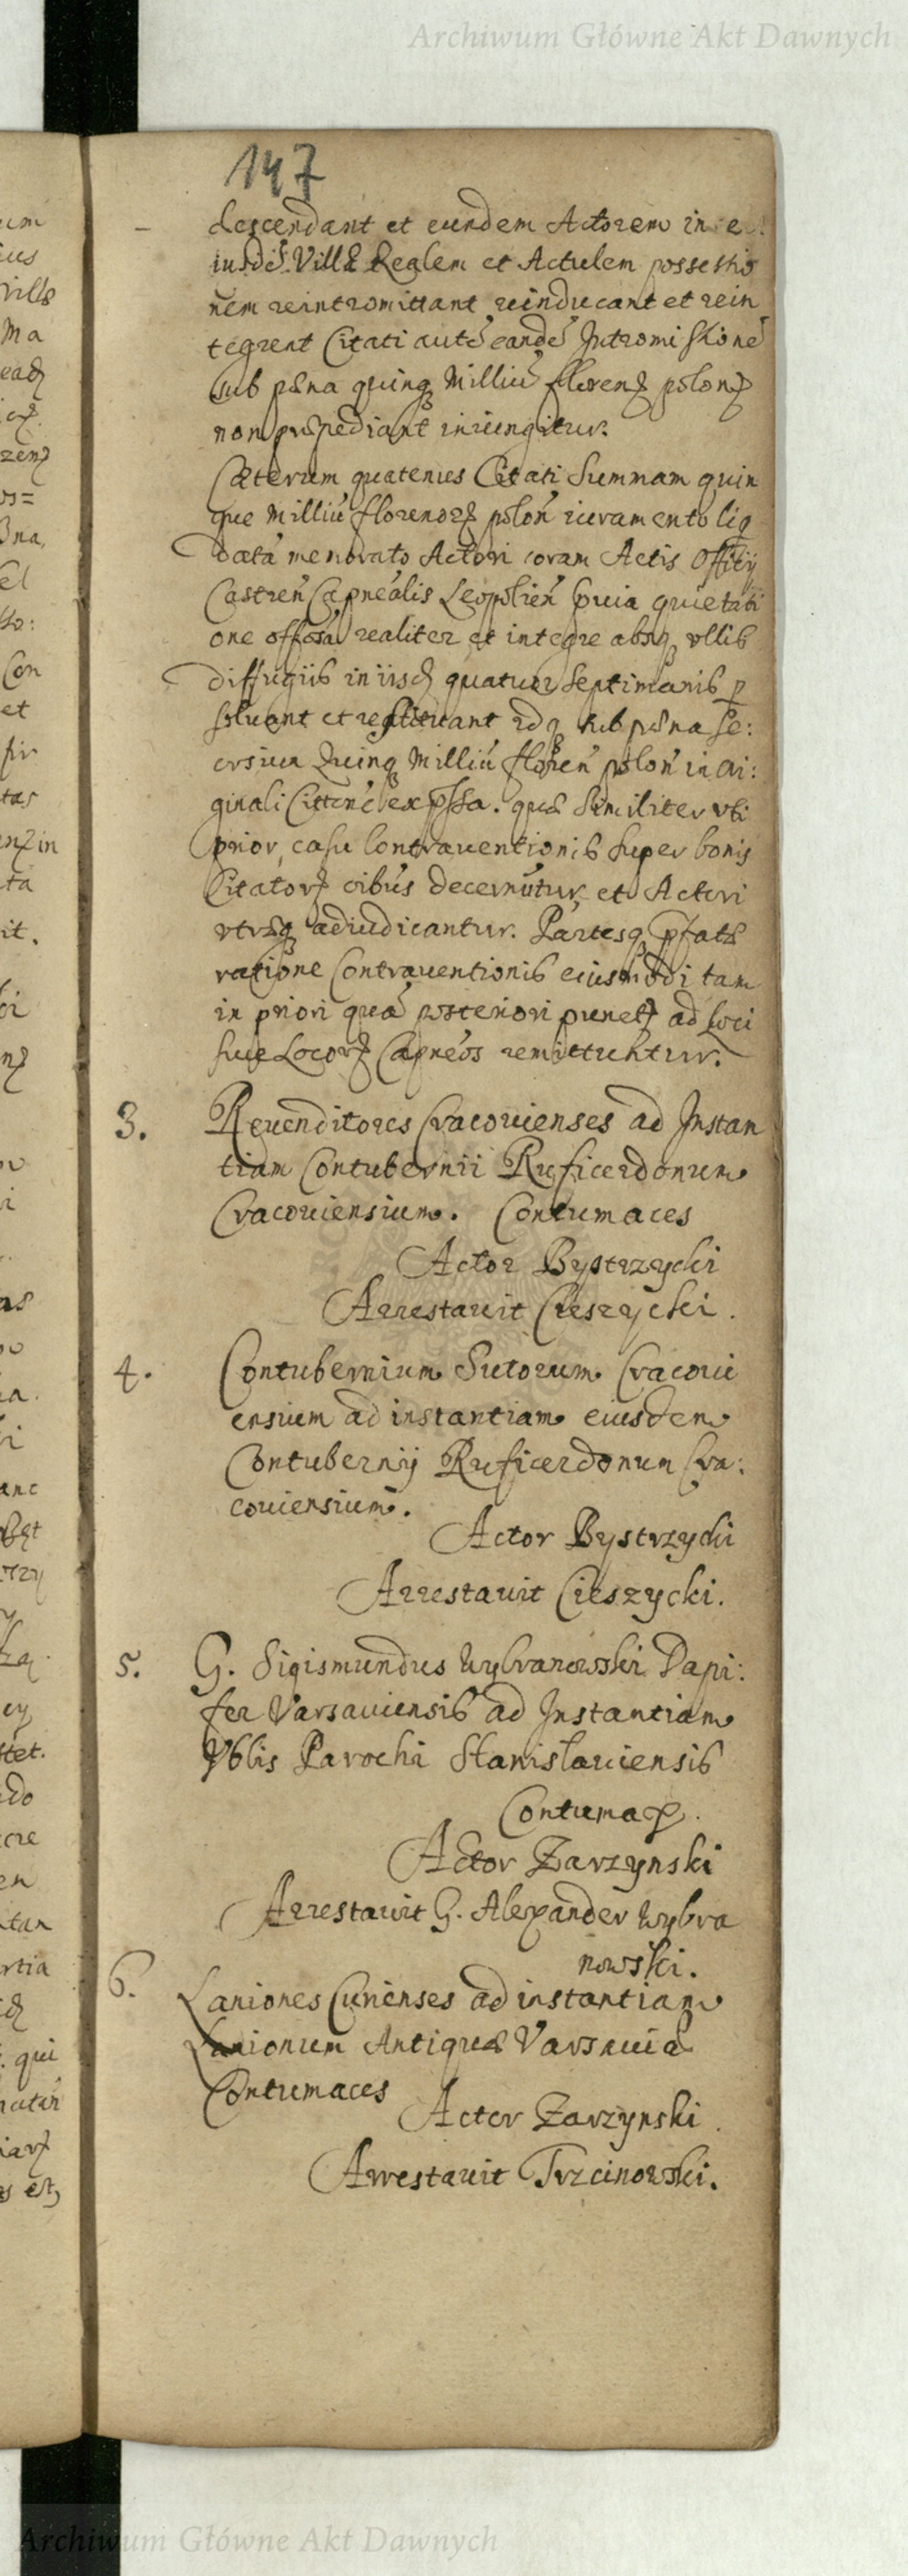 Archiwum Główne Akt Dawnych
147
descendant et eundem Actorem in e
iusdē Villæ Realem et Actulem possessio
nem reintromittant reinducant et rein
tegrent Citati autē eandē Intromissionē
sub pæna quinq Milliū florenɿ polonɿ
non præpediant iniungitur.
Cæterum quatenus Citati Summam quin
que Milliū florenorɿ polon̄ iuramento liq
datā memorato Actori coram Actis Officij
Castren̄ Capnealis Leopolien̄ quietati
one realiter et integre absq ullis
diffugiis in iisd quatuor Septimanis p
soluant et restituant idq sub pæna
Quinq Milliū floren̄ polon̄ in ori:
ginali similiter uti
prior, casu Contrauentionis super bonis
Citatorɿ oibus decernūtur et Actori
utræq adiudicantur. Partesq pfatæ
ratione Contrauentionis eiusmodi tam
in priori quā posteriori punctɿ ad Loci
siue Locorɿ Capneos remittuntur.
3. Reuenditores Cracouienses ad Instan
tiam Contubernii Ruficerdonum
Cracouiensium. Contumaces
Actor Bystrzycki
Arrestauit Cieszycki.
4. Contubernium Sutorum Cracoui
ensium ad instantiam eiusdem
Contubernij Ruficerdonum Cra:
couiensium.
Actor Bystrzycki
Arrestauit Cieszycki.
5. G. Sigismundus Wybranowski Dapi:
fer Varsauiensis ad Instantiam
Vblis Parochi Stanislauiensis
Contumax.
Actor Zarzynski
Arrestauit G. Alexander Wybra
nowski.
6. Laniones Curienses ad instantiam
Lanionum Antiquæ Varsauiæ
Contumaces
Actor Zarzynski
Arrestauit Trzcinowski.
Archiwum Główne Akt Dawnych